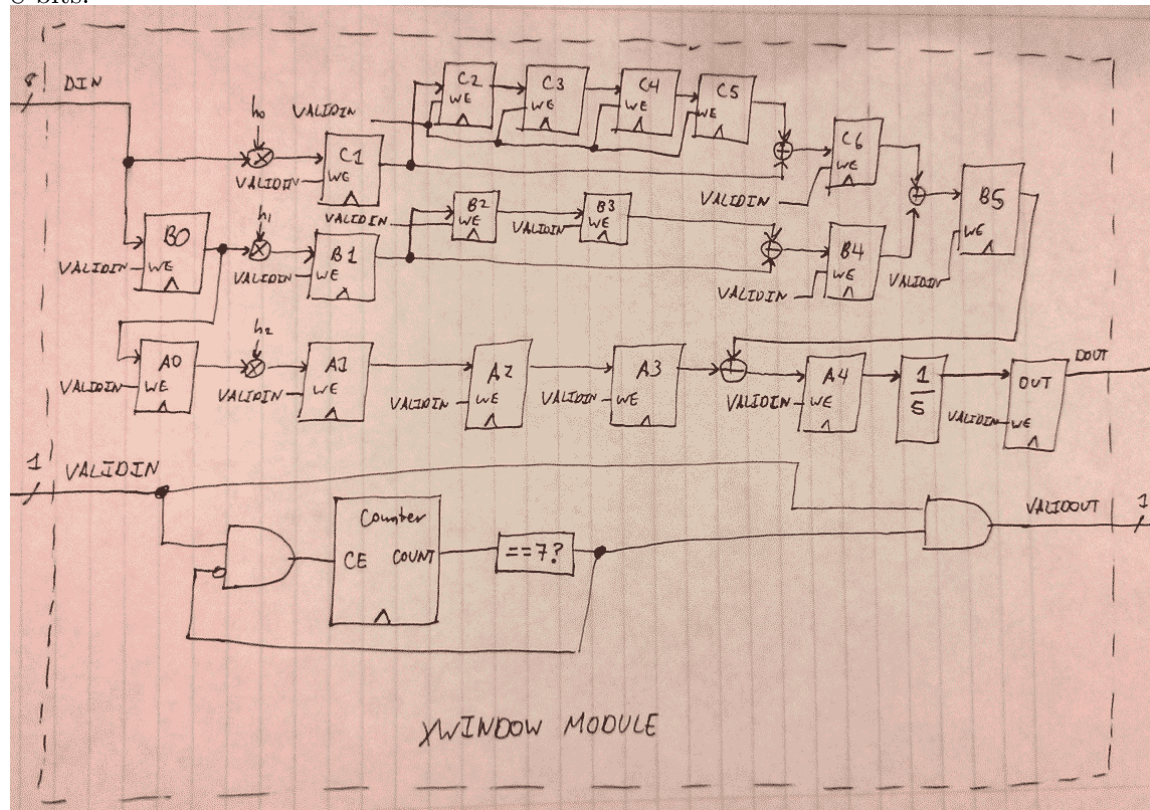 8 bits.
8 DIN
h0
VALIDIN
C2 WE
C3 WE
C4 WE
C5 WE
C1 WE
VALIDIN
C6 WE
VALIDIN
B0 WE
VALIDIN
h1
B1 WE
VALIDIN
B2 WE
VALIDIN
B3 WE
VALIDIN
B4 WE
VALIDIN
B5 WE
VALIDIN
h2
A0 WE
VALIDIN
A1 WE
VALIDIN
A2 WE
VALIDIN
A3 WE
VALIDIN
A4 WE
VALIDIN
1
5
OUT WE
VALIDIN
DOUT
1 VALIDIN
Counter
CE COUNT
==7?
VALIDOUT 1
XWINDOW MODULE